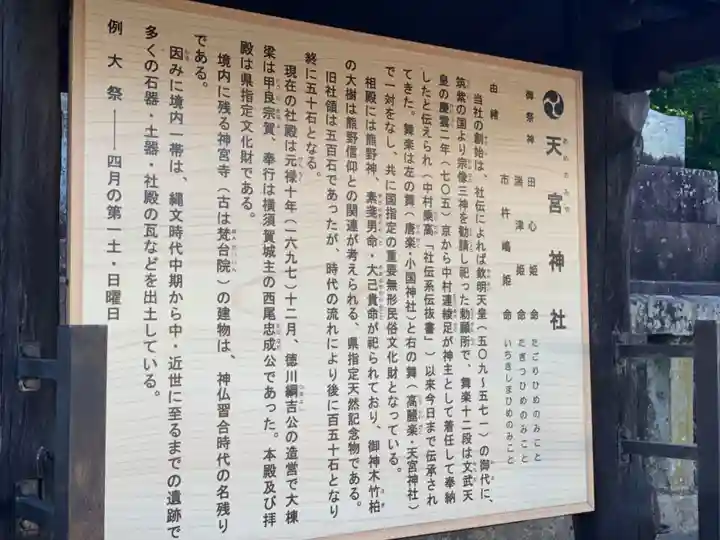 天宮神社
あめのみや
御祭神 田心姫命 たごりひめのみこと
湍津姫命 たぎつひめのみこと
市杵嶋姫命 いちきしまひめのみこと
由緒
当社の創始は、社伝によれば欽明天皇（五〇九〜五七一）の御代に、
筑紫の国より宗像三神を勧請し祀った勅願所で、舞楽十二段は文武天
皇の慶雲二年（七〇五）京から中村連綾足が神主として着任して奉納
したと伝えられ（中村乗高「社伝系伝抜書」）以来今日まで伝承され
てきた。舞楽は左の舞（唐楽・小国神社）と右の舞（高麗楽・天宮神社）
で一対をなし、共に国指定の重要無形民俗文化財となっている。
相殿には熊野神、素戔男命・大己貴命が祀られており、御神木竹柏
の大樹は熊野信仰との関連が考えられる、県指定天然記念物である。
旧社領は五百石であったが 時代の流れにより後に百五十石となり
終に五十石となる。
現在の社殿は元禄十年（一六九七）十二月、徳川綱吉公の造営で大棟
梁は甲良宗賀、奉行は横須賀城主の西尾忠成公であった。本殿及び拝
殿は県指定文化財である。
境内に残る神宮寺（古は梵台院）の建物は、神仏習合時代の名残り
である。
因みに境内一帯は、縄文時代中期から中・近世に至るまでの遺跡で
多くの石器・土器・社殿の瓦などを出土している。
例大祭――四月の第一土・日曜日